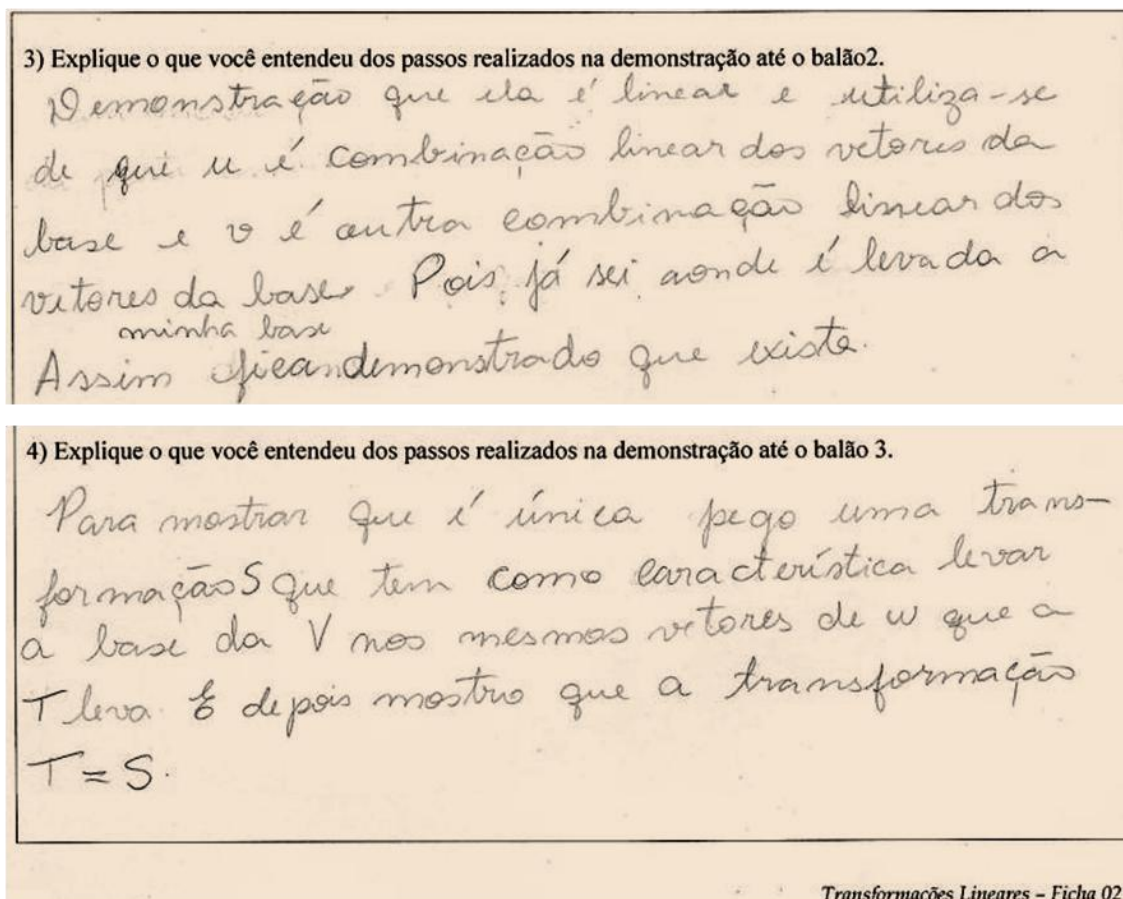 3) Explique o que você entendeu dos passos realizados na demonstração até o balão2.
Demonstração que ela é linear e utiliza-se
de que u é combinação linear dos vetores da
base e v é outra combinação linear dos
vetores da base. Pois, já sei aonde é levada a
minha base
Assim ficandemonstrado que existe.
4) Explique o que você entendeu dos passos realizados na demonstração até o balão 3.
Para mostrar que é única pego uma trans-
formação S que tem como característica levar
a base da V nos mesmos vetores de w que a
T leva. E depois mostro que a transformação
T = S.
Transformações Lineares – Ficha 02